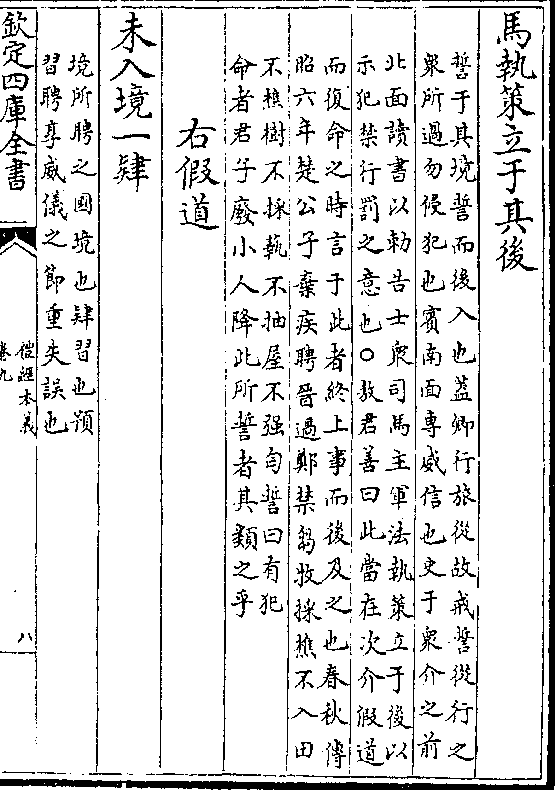 馬執策立于其後
誓于其境誓而後入也蓋卿行旅從故戒誓從行之
衆所過勿侵犯也賓南面專威信也史于衆介之前
北面讀書以勑告士衆司馬主軍法執策立于後以
示犯禁行罰之意也○敖君善曰此當在次介假道
而復命之時言于此者終上事而後及之也春秋傳
昭六年楚公子棄疾聘晉過鄭禁芻牧採樵不入田
不樵樹不採蓺不抽屋不强匄誓曰有犯
命者君子廢小人降此所誓者其類之乎
右假道
未入境一肄
境所聘之國境也肄習也預
習聘享威儀之節重失誤也
欽定四庫全書
儀禮本義
卷九
八